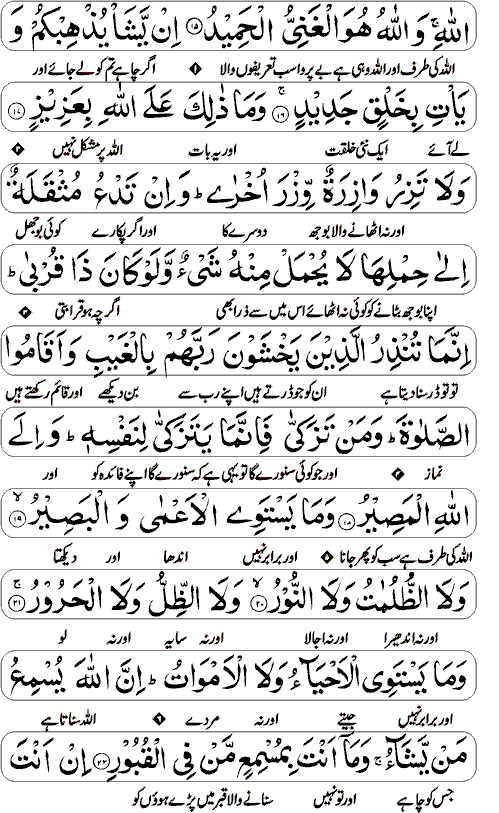 اللّٰهِ ۚ وَ اللّٰهُ هُوَ الْغَنِیُّ الْحَمِیْدُ ۝۱۵ اِنْ یَّشَاْ یُذْهِبْكُمْ وَ
اللہ کی طرف اور اللہ وہی ہے بے پروا سب تعریفوں والا ۱ اگر چاہے تم کو لے جائے اور
یَاْتِ بِخَلْقٍ جَدِیْدٍ ۝۱۶ ۚ وَ مَا ذٰلِكَ عَلَی اللّٰهِ بِعَزِیْزٍ ۝۱۷
لے آئے ایک نئی خلقت اور یہ بات اللہ پر مشکل نہیں ۲
وَ لَا تَزِرُ وَازِرَةٌ وِّزْرَ اُخْرٰی ؕ وَ اِنْ تَدْعُ مُثْقَلَةٌ
اور نہ اٹھائے گا کوئی اٹھانے والا بوجھ دوسرے کا اور اگر پکارے کوئی بوجھل
اِلٰی حِمْلِهَا لَا یُحْمَلْ مِنْهُ شَیْءٌ وَّ لَوْ كَانَ ذَا قُرْبٰی ؕ
اپنا بوجھ بٹانے کو کوئی نہ اٹھائے اس میں سے ذرا بھی اگرچہ ہو قرابتی ۳
اِنَّمَا تُنْذِرُ الَّذِیْنَ یَخْشَوْنَ رَبَّهُمْ بِالْغَیْبِ وَ اَقَامُوا
تو تو ڈر سنا دیتا ہے ان کو جو ڈرتے ہیں اپنے رب سے بن دیکھے اور قائم رکھتے ہیں
الصَّلٰوةَ ؕ وَ مَنْ تَزَكّٰی فَاِنَّمَا یَتَزَكّٰی لِنَفْسِهٖ ؕ وَ اِلَی
نماز ۴ اور جو کوئی سنورے گا تو یہی ہے کہ سنورے گا اپنے فائدہ کو اور
اللّٰهِ الْمَصِیْرُ ۝۱۸ وَ مَا یَسْتَوِی الْاَعْمٰی وَ الْبَصِیْرُ ۝۱۹ ۙ
اللہ کی طرف ہے سب کو پھر جانا ۵ اور برابر نہیں اندھا اور دیکھتا
وَ لَا الظُّلُمٰتُ وَ لَا النُّوْرُ ۝۲۰ ۙ وَ لَا الظِّلُّ وَ لَا الْحَرُوْرُ ۝۲۱ ۚ
اور نہ اندھیرا اور نہ اجالا اور نہ سایہ اور نہ لو
وَ مَا یَسْتَوِی الْاَحْیَآءُ وَ لَا الْاَمْوَاتُ ؕ اِنَّ اللّٰهَ یُسْمِعُ
اور برابر نہیں جیتے اور نہ مردے ۶ اللہ سناتا ہے
مَنْ یَّشَآءُ ۚ وَ مَاۤ اَنْتَ بِمُسْمِعٍ مَّنْ فِی الْقُبُوْرِ ۝۲۲ اِنْ اَنْتَ
جس کو چاہے اور تو نہیں سنانے والا قبر میں پڑے ہوؤں کو